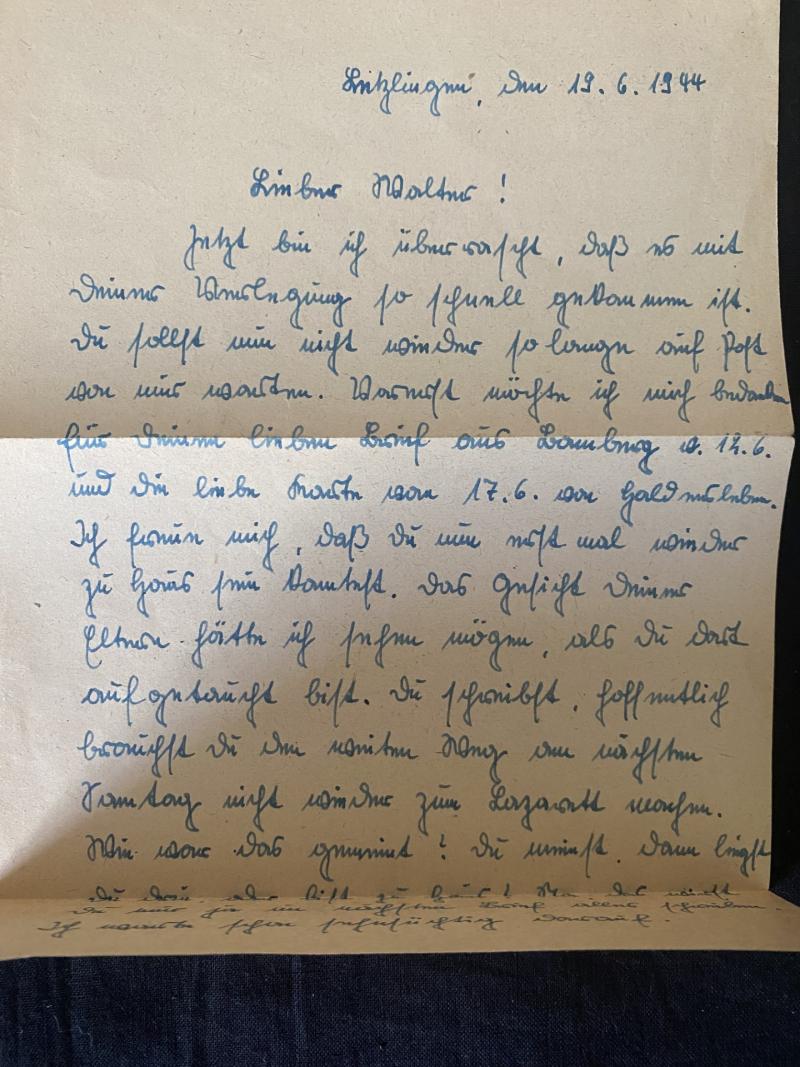 Letzlingen, den 19.6.1944
Lieber Walter!
Jetzt bin ich überrascht, daß es mit
Deiner Verlegung so schnell gekommen ist.
Du sollst nun nicht wieder so lange auf Post
von mir warten. Vorerst möchte ich mich bedanken
für Deinen lieben Brief aus Bamberg v. 12.6.
und die liebe Karte vom 17.6. von Haldensleben.
Ich freue mich, daß Du nun erst mal wieder
zu Haus sein kamtest. Das Gesicht Deiner
Eltern hätte ich sehen mögen, als Du dort
aufgetaucht bist. Du schreibst, hoffentlich
brauchst Du den weiten Weg am nächsten
Samtag nicht wieder zum Lazarett machen.
Wie war das gemeint? Du meinst, dann liegst
Du oder bist zu Haus?
Du mir ja im nächsten Brief alles schreiben.
Ich warte schon sehnsüchtig darauf.